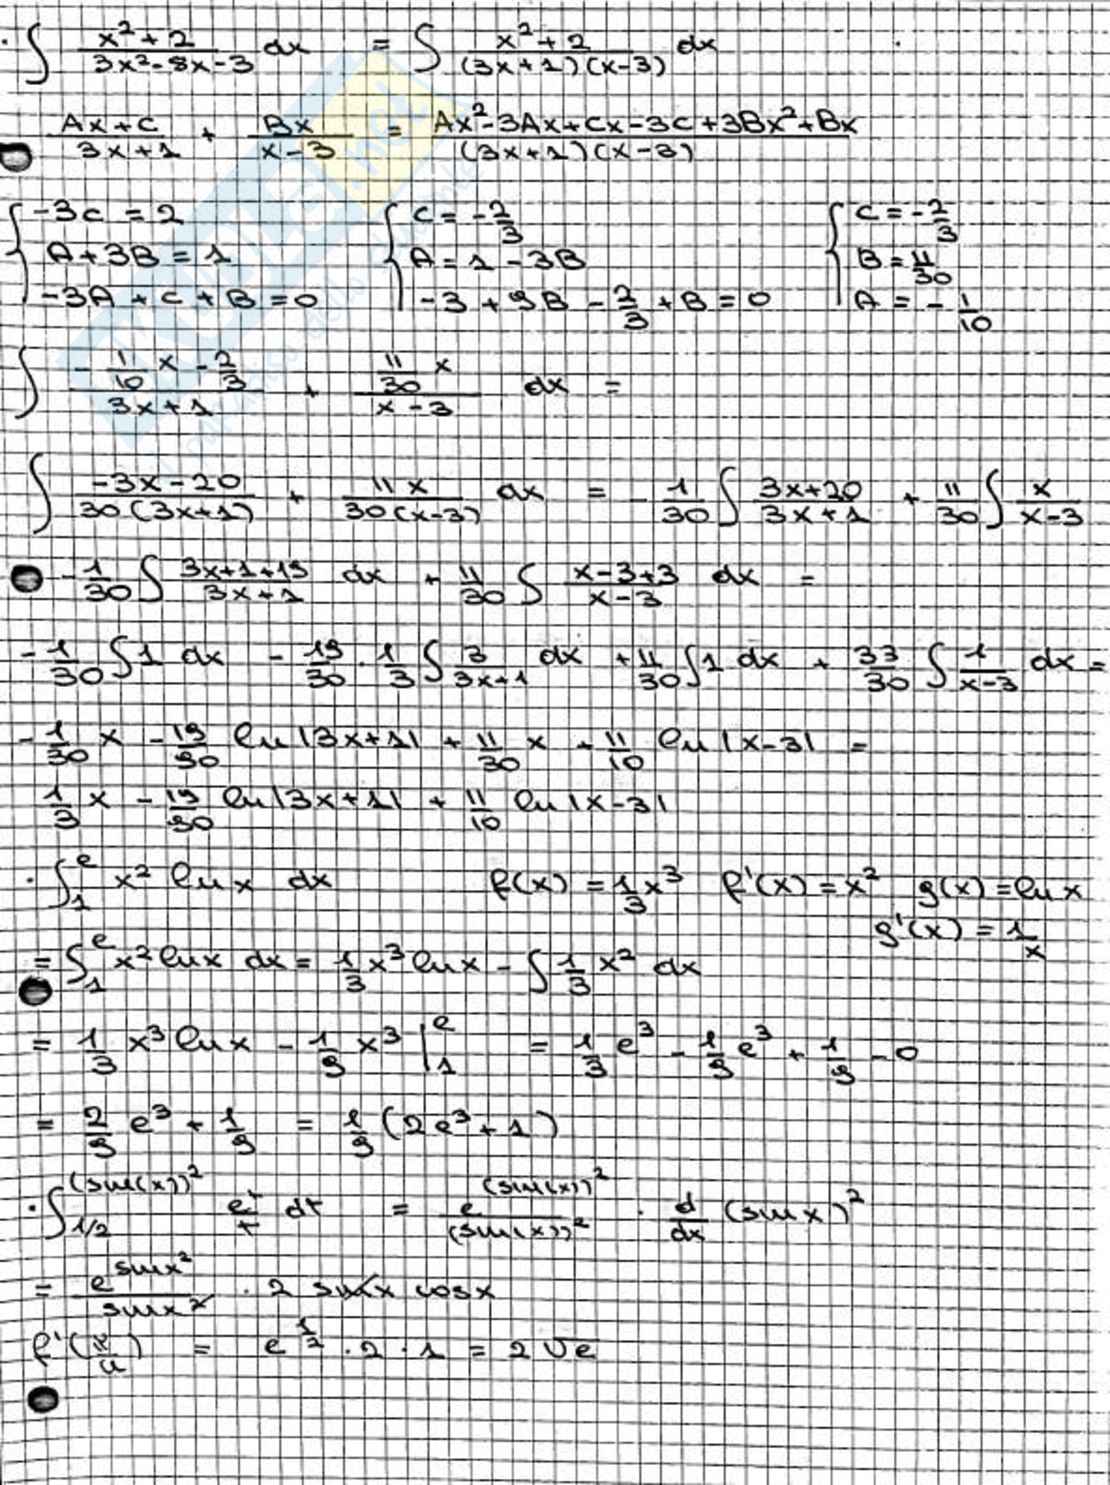 · ∫ (x²+2)/(3x²-8x-3) dx = ∫ (x²+2)/((3x+1)(x-3)) dx
(Ax+C)/(3x+1) + Bx/(x-3) = (Ax²-3Ax+Cx-3C+3Bx²+Bx)/((3x+1)(x-3))
{ -3C = 2 { C = -2/3 { C = -2/3
A+3B = 1 A = 1-3B B = 11/30
-3A + C + B = 0 -3+9B-2/3+B = 0 A = -1/10
∫ (-1/10 x - 2/3)/(3x+1) + (11/30 x)/(x-3) dx =
∫ (-3x-20)/(30(3x+1)) + 11x/(30(x-3)) dx = -1/30 ∫ (3x+20)/(3x+1) + 11/30 ∫ x/(x-3)
-1/30 ∫ (3x+1+19)/(3x+1) dx + 11/30 ∫ (x-3+3)/(x-3) dx =
-1/30 ∫ 1 dx - 19/30 · 1/3 ∫ 3/(3x+1) dx + 11/30 ∫ 1 dx + 33/30 ∫ 1/(x-3) dx =
-1/30 x - 19/90 ln|3x+1| + 11/30 x + 11/10 ln|x-3| =
1/3 x - 19/90 ln|3x+1| + 11/10 ln|x-3|
· ∫₁ᵉ x² ln x dx f(x) = 1/3 x³ f'(x) = x² g(x) = ln x
g'(x) = 1/x
= ∫₁ᵉ x² ln x dx = 1/3 x³ ln x - ∫ 1/3 x² dx
= 1/3 x³ ln x - 1/9 x³ |₁ᵉ = 1/3 e³ - 1/9 e³ + 1/9 - 0
= 2/9 e³ + 1/9 = 1/9 (2e³+1)
· ∫_{1/2}^{(sin(x))²} eᵗ/t dt = e^{(sin(x))²}/(sin(x))² · d/dx (sin x)²
= e^{sin x²}/sin x² · 2 sin x cos x
f'(π/4) = e^{1/2} · 2 · 1 = 2√e